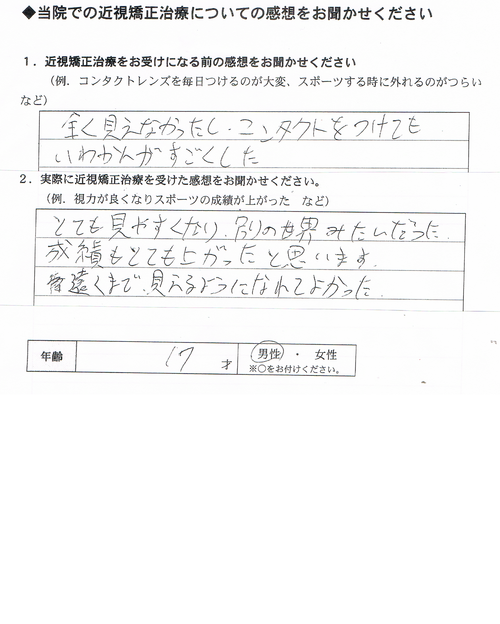 ◆当院での近視矯正治療についての感想をお聞かせください
1．近視矯正治療をお受けになる前の感想をお聞かせください
（例．コンタクトレンズを毎日つけるのが大変、スポーツする時に外れるのがつらい
など）
全く見えなかったし、コンタクトをつけても
いわかんがすごくした
2．実際に近視矯正治療を受けた感想をお聞かせください。
（例．視力が良くなりスポーツの成績が上がった　など）
とても見やすくなり、別の世界みたいだった。
成績もとても上がったと思います。
遠くまで、見えるようになれてよかった。
年齢　17　才　男性　・　女性
※○をお付けください。